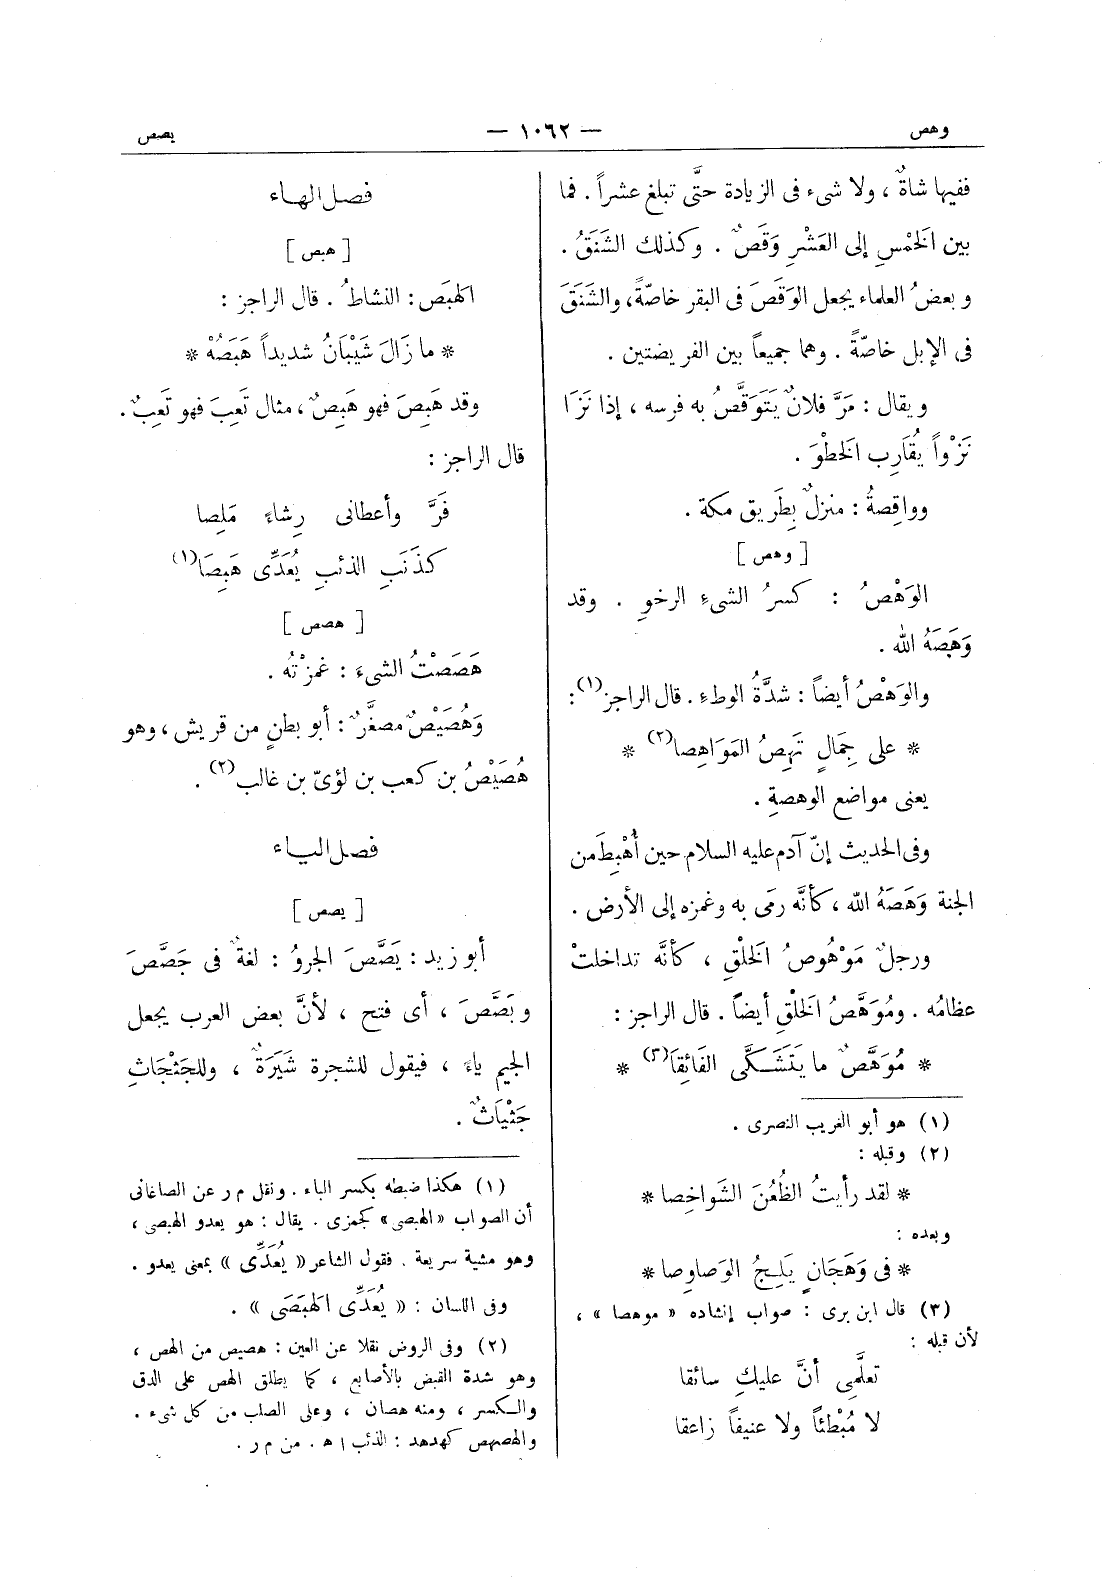 وهص
— ١٠٦٢ —
يصص
ففيها شاةٌ ، ولا شىء فى الزيادة حتَّى تبلغ عشراً . فما
بين الخَمْسِ إلى العَشْرِ وَقَصٌ . وكذلك الشَنَقُ .
وبعضُ العلماء يجعل الوَقَصَ فى البقر خاصّةً، والشَنَقَ
فى الإبل خاصّةً . وهما جميعاً بين الفريضتين .
ويقال : مَرَّ فلانٌ يَتَوَقَّصُ به فرسه ، إذا نَزَا
نَزْواً يُقَارِب الخطْوَ .
وواقِصةُ : منزلٌ بِطَرِيق مكة .
[ وهص ]
الوَهْصُ : كسرُ الشىءِ الرخوِ . وقد
وَهَصَهُ اللهُ .
والوَهْصُ أيضاً : شدَّةُ الوطءِ . قال الراجز(١) :
* على جِمَالٍ تَهِصُ المَوَاهِصا(٢) *
يعنى مواضع الوهصةِ .
وفى الحديث إنّ آدم عليه السلام حين أُهْبِطَ من
الجنة وَهَصَهُ الله ، كأنَّه رمَى به وغمزه إلى الأرض .
ورجلٌ مَوْهُوصُ الخَلْقِ ، كأنَّه تداخلتْ
عظامُه . ومُوَهَّصُ الخَلْقِ أيضاً . قال الراجز :
* مُوَهَّصٌ ما يَتَشَكَّى الفَائِقَا(٣) *
(١) هو أبو الغريب النصرى .
(٢) وقبله :
* لقد رأيتُ الظُعُنَ الشَواخِصا *
وبعده :
* فى وَهَجَانٍ يَلِجُ الوَصاوِصا *
(٣) قال ابن برى : صواب إنشاده « موهصا » ،
لأن قبله :
تعلَّمِى أنَّ عليكِ سائقا
لا مُبْطئاً ولا عنيفاً زاعقا
فصل الهاء
[ هبص ]
الهَبَص : النشاطُ . قال الراجز :
* ما زَالَ شَيْبَانُ شديداً هَبَصُهْ *
وقد هَبِصَ فهو هَبِصٌ ، مثال تَعِبَ فهو تَعِبٌ .
قال الراجز :
فَرَّ وأعطانى رِشاءً مَلِصا
كذَنَبِ الذئبِ يُعَدِّى هَبِصَا(١)
[ هصص ]
هَصَصْتُ الشىءَ : غمزْتُه .
وَهُصَيْصٌ مصغَّرٌ : أبو بطنٍ من قريش ، وهو
هُصَيْصُ بن كعب بن لؤىّ بن غالب(٢) .
فصل الياء
[ يصص ]
أبو زيد : يَصَّصَ الجروُ : لغةٌ فى جَصَّصَ
وبَصَّصَ ، أى فتح ، لأنَّ بعض العرب يجعل
الجيم ياءً ، فيقول للشجرة شَيَرَةٌ ، وللجَثْجَاثِ
جَثْيَاثٌ .
(١) هكذا ضبطه بكسر الباء . ونقل م ر عن الصاغانى
أن الصواب «الهبصى» كجمزى . يقال : هو يعدو الهبصى ،
وهو مشية سريعة . فقول الشاعر « يُعَدِّى » بمعنى يعدو .
وفى اللسان : « يُعَدِّى الهَبَصَى » .
(٢) وفى الروض نقلا عن العين : هصيص من الهص ،
وهو شدة القبض بالأصابع ، كما يطلق الهص على الدق
والكسر ، ومنه هصان ، وعلى الصلب من كل شىء .
والهصهص كهدهد : الذئب ا ه . من م ر .